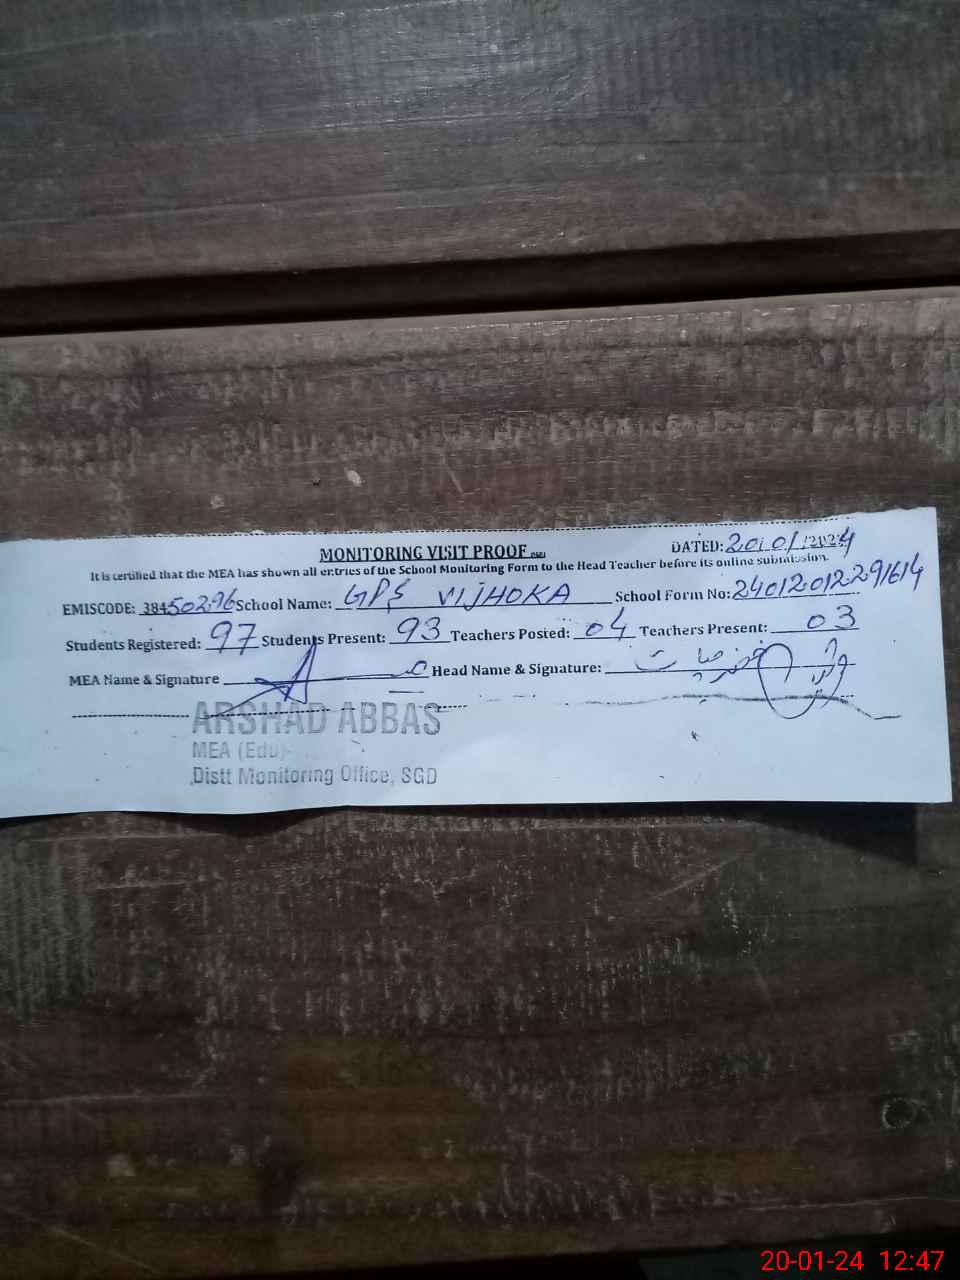 MONITORING VISIT PROOF DATED: 20.01.2024
It is certified that the MEA has shown all entries of the School Monitoring Form to the Head Teacher before its online submission.
EMISCODE: 38450296 School Name: GPS VIJHOKA School Form No: 24012012291614
Students Registered: 97 Students Present: 93 Teachers Posted: 04 Teachers Present: 03
MEA Name & Signature Head Name & Signature:
ARSHAD ABBAS
MEA (Edu)
Distt Monitoring Office, SGD
20-01-24 12:47